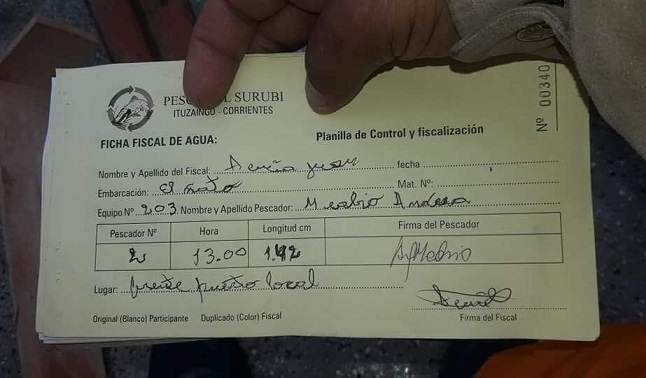 PES L SURUBI
ITUZAINGO - CORRIENTES
Nº 00340
FICHA FISCAL DE AGUA:
Planilla de Control y fiscalización
Nombre y Apellido del Fiscal: fecha
Embarcación: Mat. Nº:
Equipo Nº 203 Nombre y Apellido Pescador: Medio Andrea
Pescador Nº Hora Longitud cm Firma del Pescador
2 13.00 1.42
Lugar: frente puerto local
Original (Blanco) Participante Duplicado (Color) Fiscal Firma del Fiscal